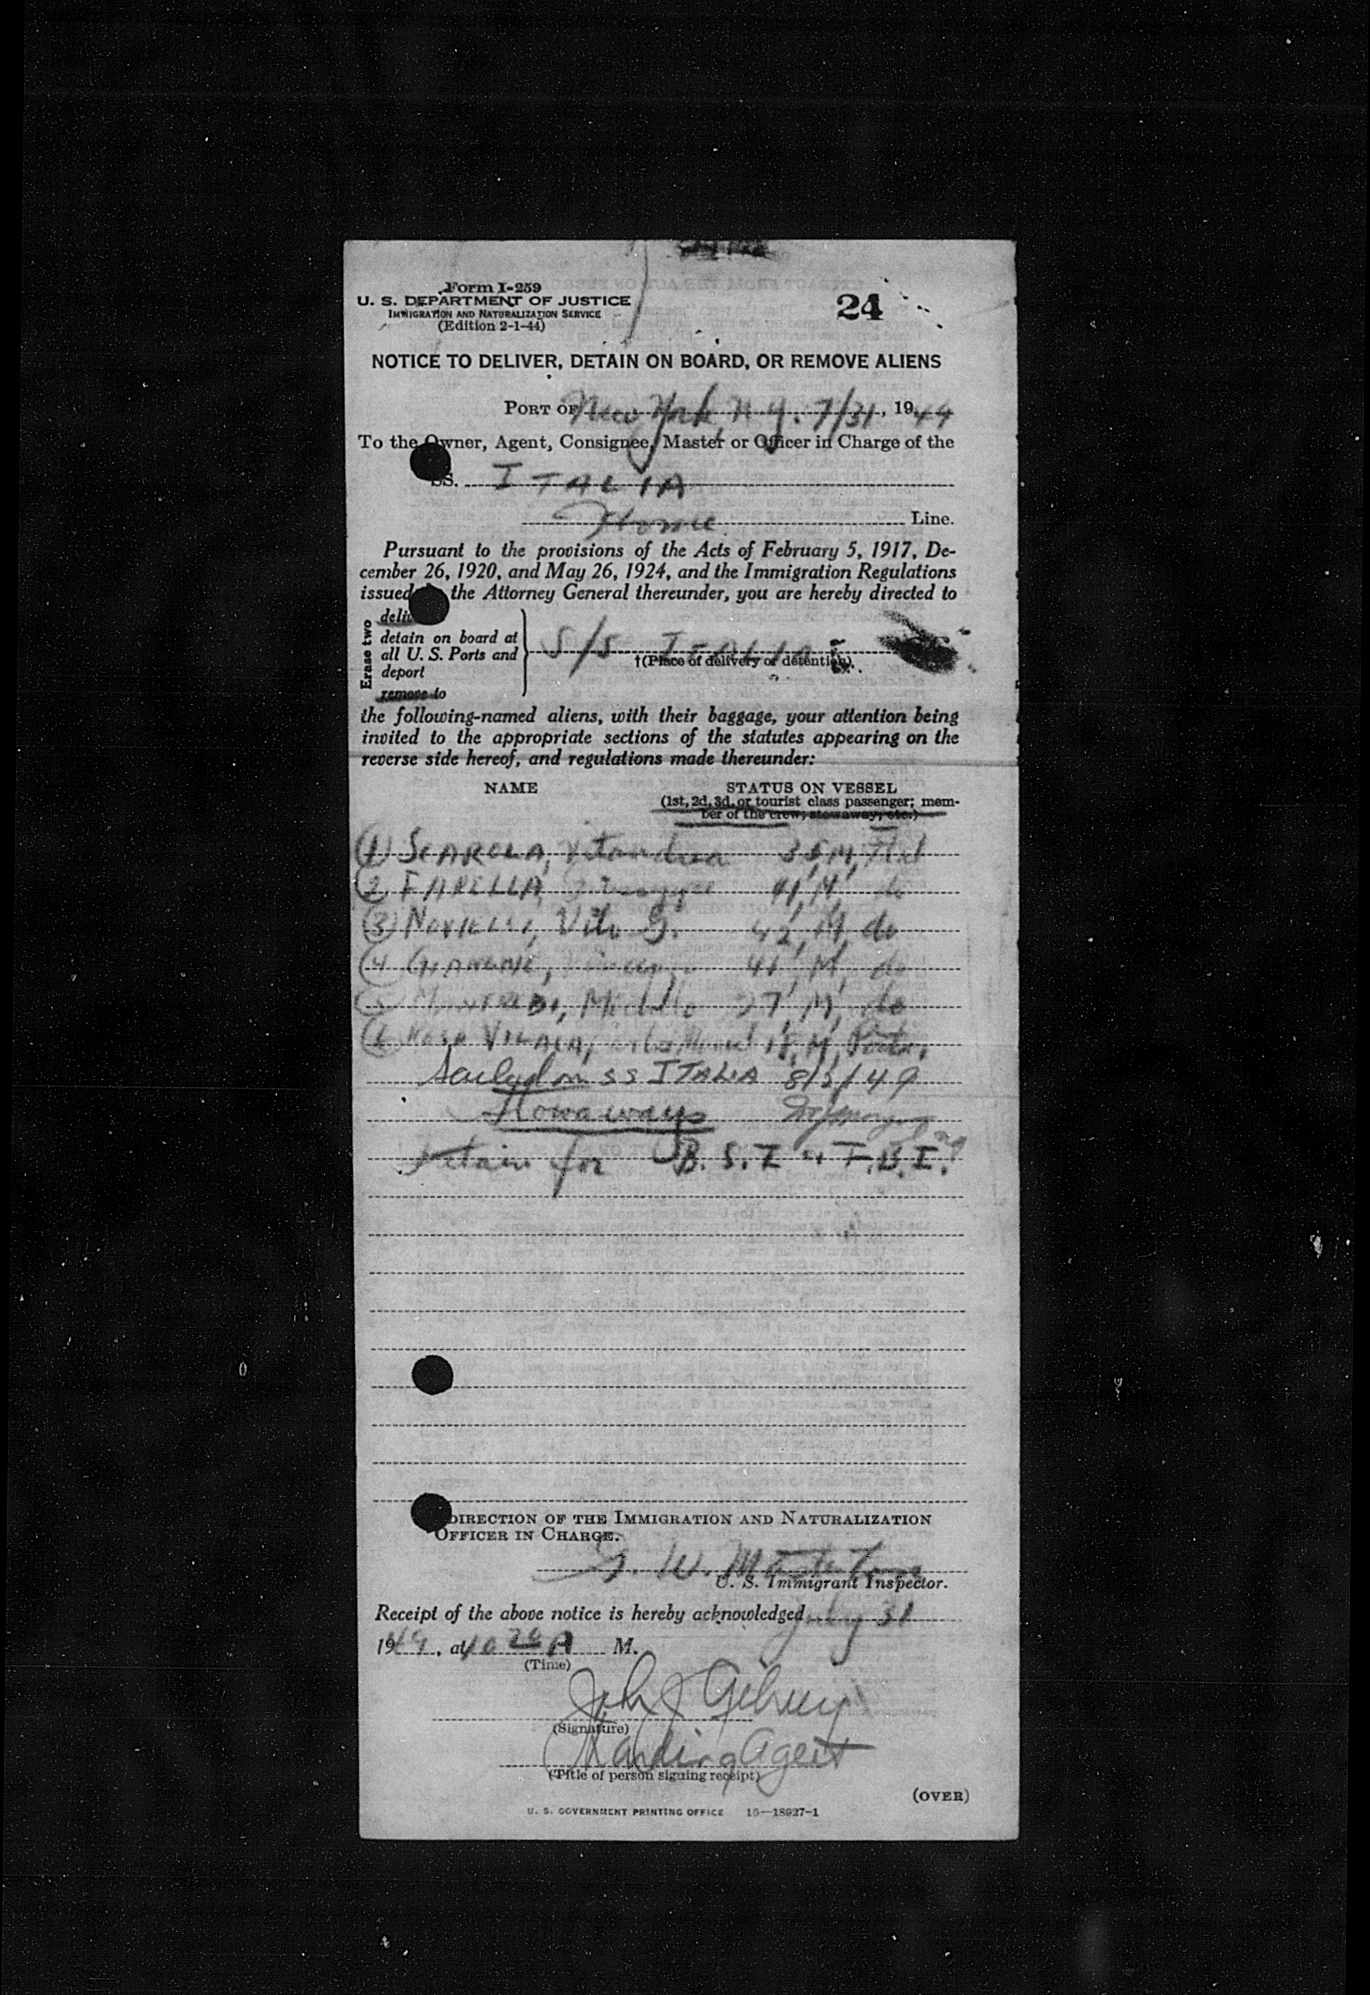 Form I-259
U. S. DEPARTMENT OF JUSTICE
IMMIGRATION AND NATURALIZATION SERVICE
(Edition 2-1-44)
24
NOTICE TO DELIVER, DETAIN ON BOARD, OR REMOVE ALIENS
PORT OF New York, N.Y. 7/31, 1949
To the Owner, Agent, Consignee, Master or Officer in Charge of the
SS. ITALIA
Home Line.
Pursuant to the provisions of the Acts of February 5, 1917, De-
cember 26, 1920, and May 26, 1924, and the Immigration Regulations
issued the Attorney General thereunder, you are hereby directed to
Erase two
detain on board at
all U. S. Ports and
deport
remove to
S/S ITALIA
†(Place of delivery or detention)
the following-named aliens, with their baggage, your attention being
invited to the appropriate sections of the statutes appearing on the
reverse side hereof, and regulations made thereunder:
NAME STATUS ON VESSEL
(1st, 2d, 3d, or tourist class passenger; mem-
ber of the crew; stowaway, etc.)
(1) SCAROLA, M,
(2) FARELLA, 41, M, do
(3) Vito G. 42, M, do
(4) 41, M, do
(5) 27, M, do
(6) 18, M,
Sailed on SS ITALIA 8/3/49
Stowaways
Detain for B.S.I F.B.I.
DIRECTION OF THE IMMIGRATION AND NATURALIZATION
OFFICER IN CHARGE.
W.
U. S. Immigrant Inspector.
Receipt of the above notice is hereby acknowledged July 31
1949, at 10 A M.
(Time)
John J
(Signature)
Agent
(Title of person signing receipt)
(OVER)
U. S. GOVERNMENT PRINTING OFFICE 16—18927-1